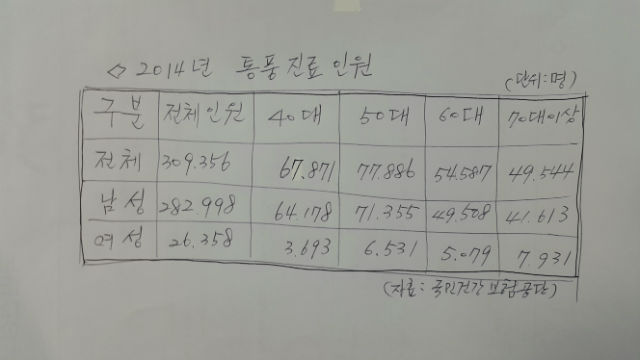 ◇ 2014년 통풍진료인원
(단위:명)
구분 전체인원 40대 50대 60대 70대이상
전체 309.356 67.871 77.886 54.587 49.544
남성 282.998 64.178 71.355 49.508 41.613
여성 26.358 3.693 6.531 5.079 7.931
(자료: 국민건강보험공단)